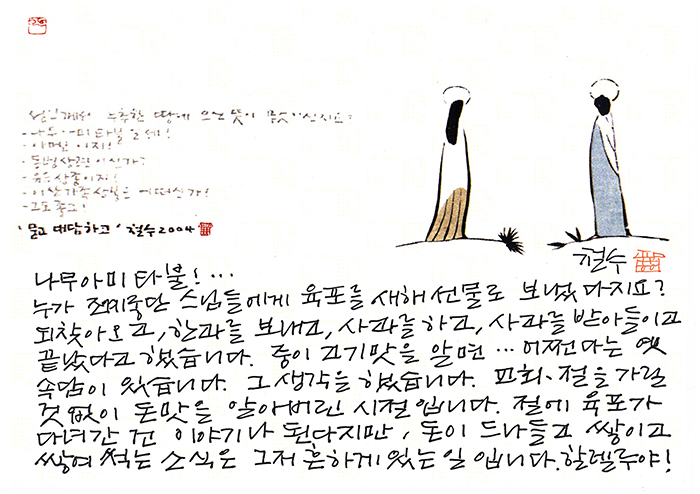 누추한 땅에 오신 뜻이 무엇이신지요?
-나무아미타불일세!
-아멘이지!
-동병상련이신가?
-유유상종이지!
-이산가족상봉은 어떠신가!
-그도 좋고!
'묻고 대답하고' 철수 2004
철수
나무아미타불!...
누가 조계종단 스님들에게 육포를 새해 선물로 보냈다지요?
되찾아오고, 한과를 보내고, 사과를 하고, 사과를 받아들이고
끝났다고 했습니다. 중이 고기맛을 알면... 어쩐다는 옛
속담이 있습니다. 그 생각을 했습니다. 교회·절을 가릴
것 없이 돈맛을 알아버린 시절입니다. 절에 육포가
다녀간 건 이야기나 된다지만, 돈이 드나들고 쌓이고
쌓여 썩는 소식은 그저 흔하게 있는 일입니다. 할렐루야!